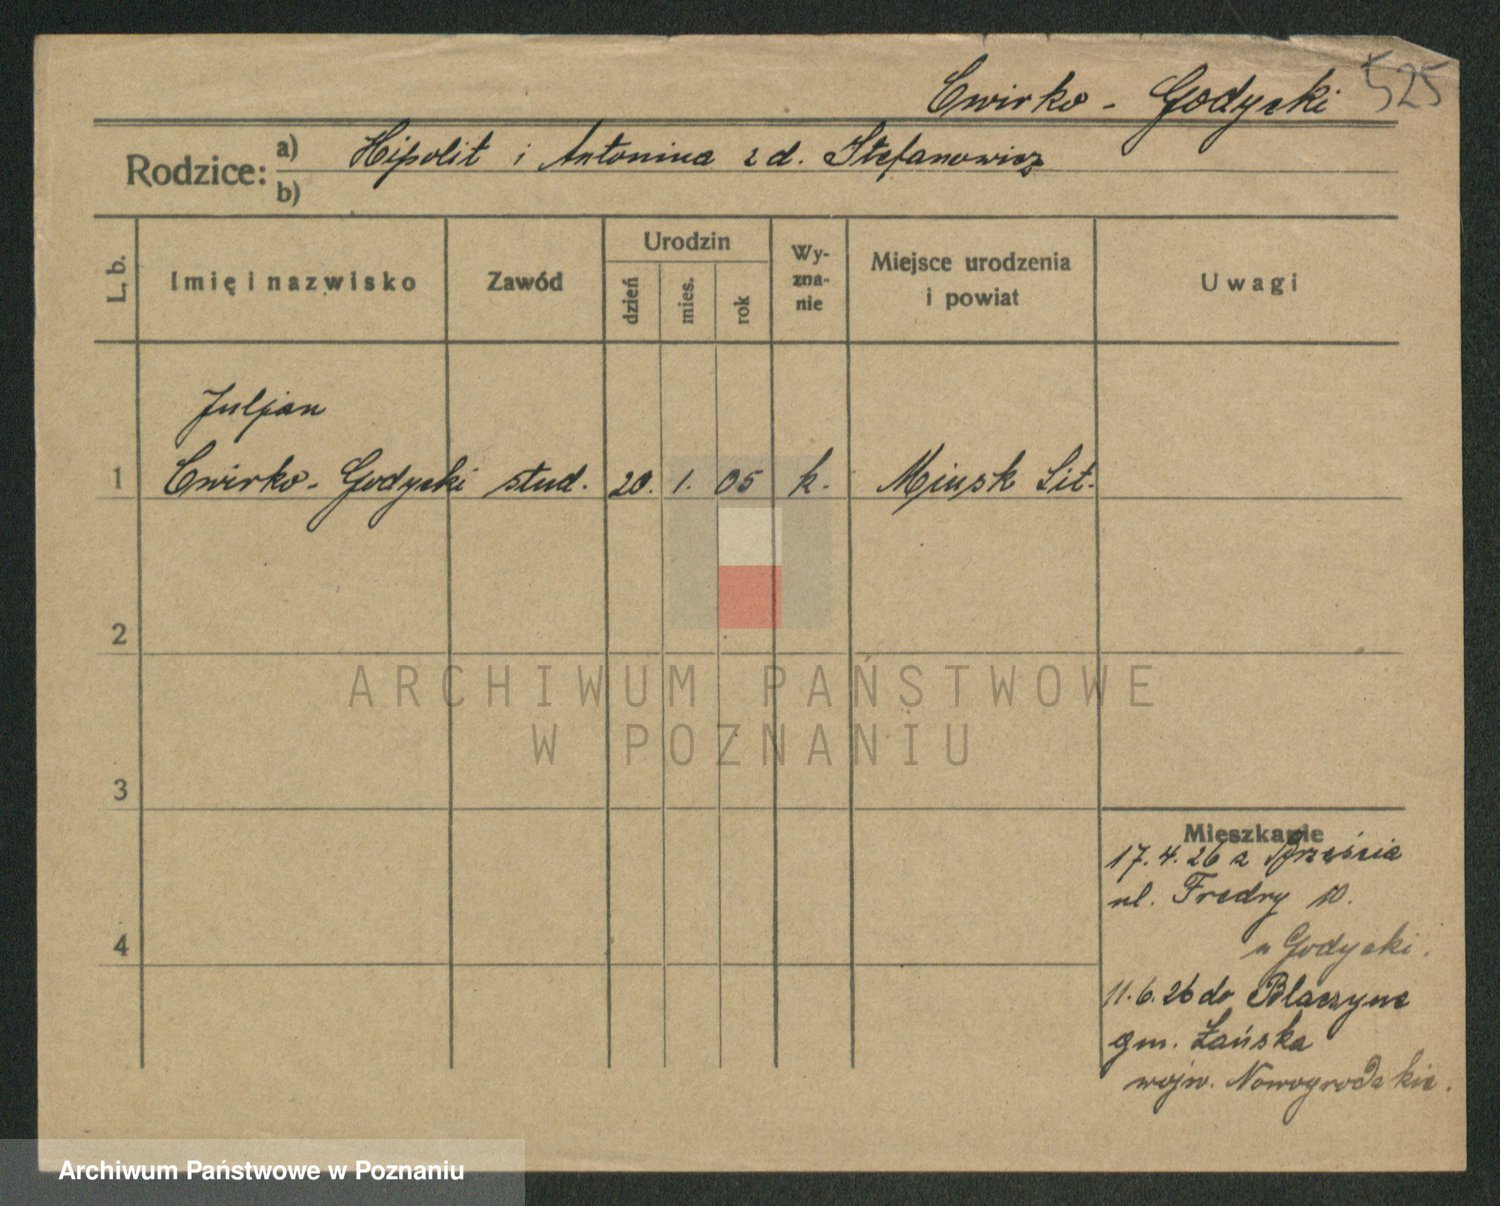 Cwirko - Godycki 525
Rodzice: a) Hipolit i Antonina z d. Stefanowicz
b)
L. b. Imię i nazwisko Zawód Urodzin dzień mies. rok Wy-zna-nie Miejsce urodzenia i powiat Uwagi
Juljan
1 Cwirko - Godycki stud. 20. 1. 05 k. Mińsk Lit.
2
ARCHIWUM PAŃSTWOWE
W POZNANIU
3
Mieszkanie
17.4.26 z Brześcia
ul. Fredry 10.
4
u Godycki.
11.6.26 do Blaczyne
gm. Łańska
wojw. Nowogrodzkie.
Archiwum Państwowe w Poznaniu